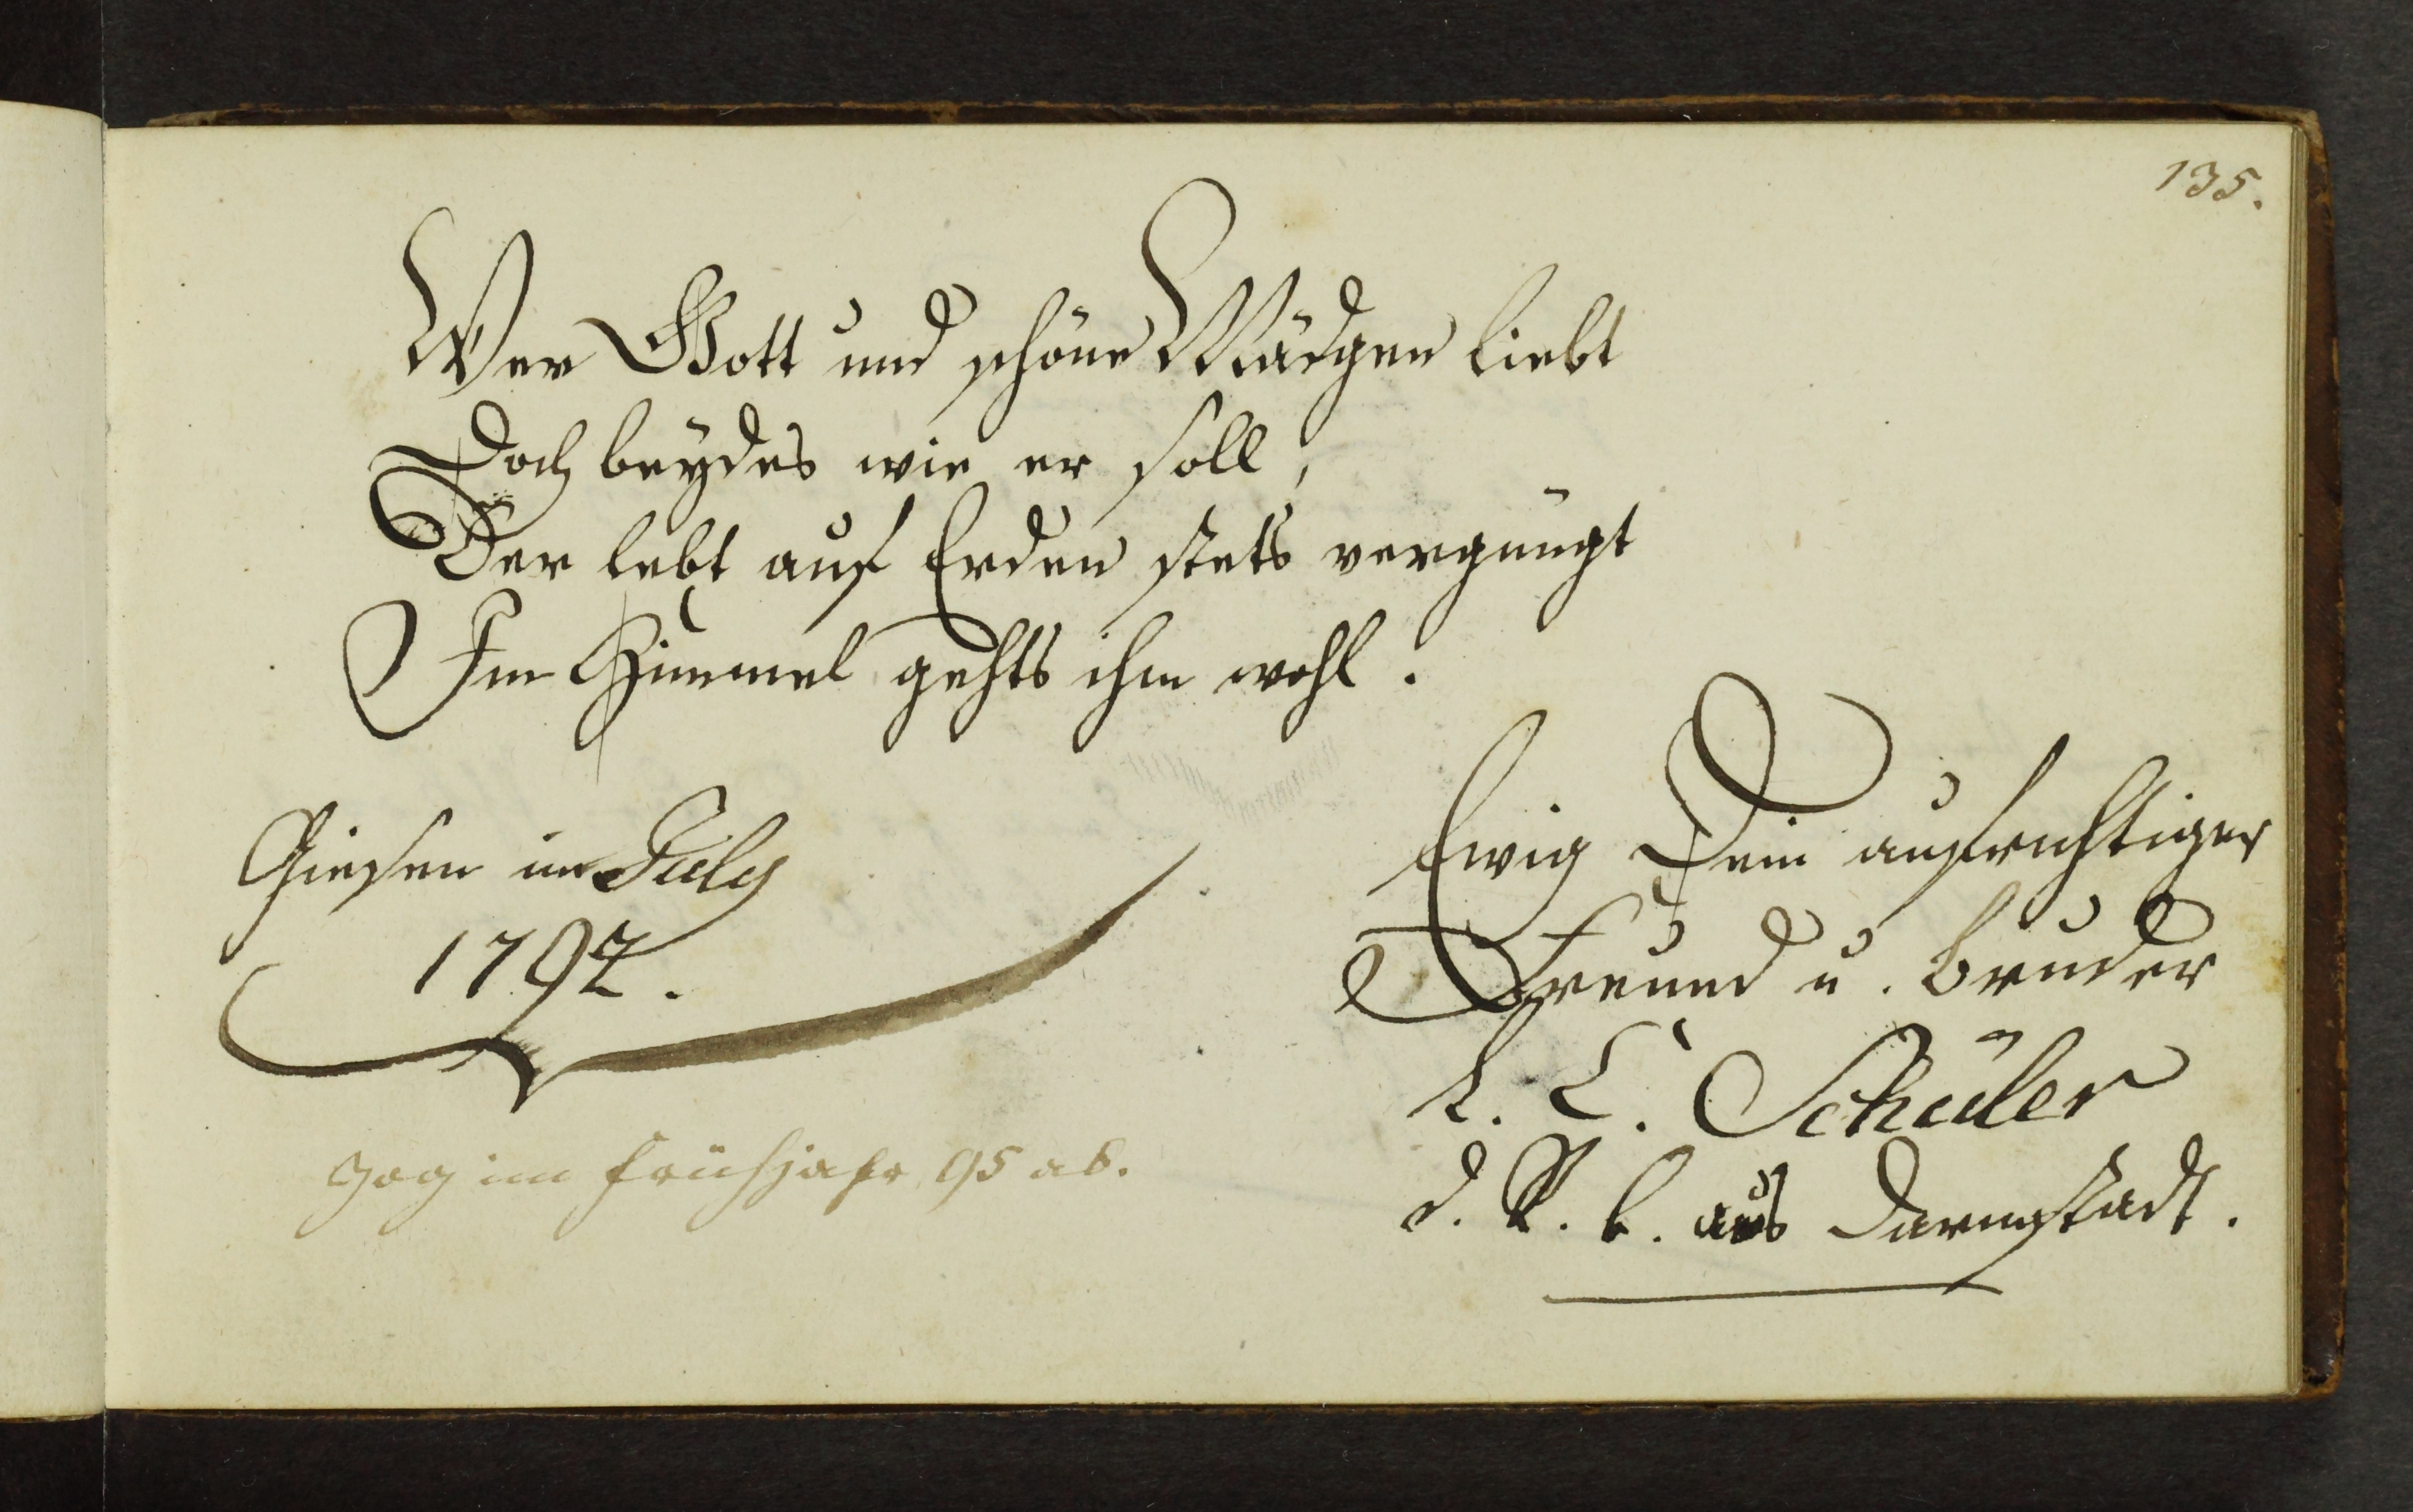 135.
Wer Gott und schöne Mädgen liebt
Doch beydes wie er soll,
Der lebt auf Erden stets vergnügt
Im Himmel gehts ihm wohl.
Giesen im July
1792.
Ewig Dein aufrichtiger
Freund u. Bruder
L. C. Schüler
d. R. b. aus Darmstadt.
zog im Frühjahr 95 ab.